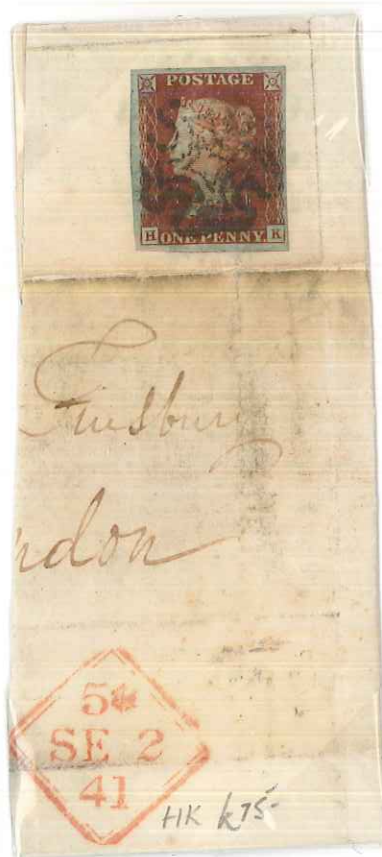 POSTAGE
H ONE PENNY. K
Finsbury
ndon
5
SE 2
41
HK k75-